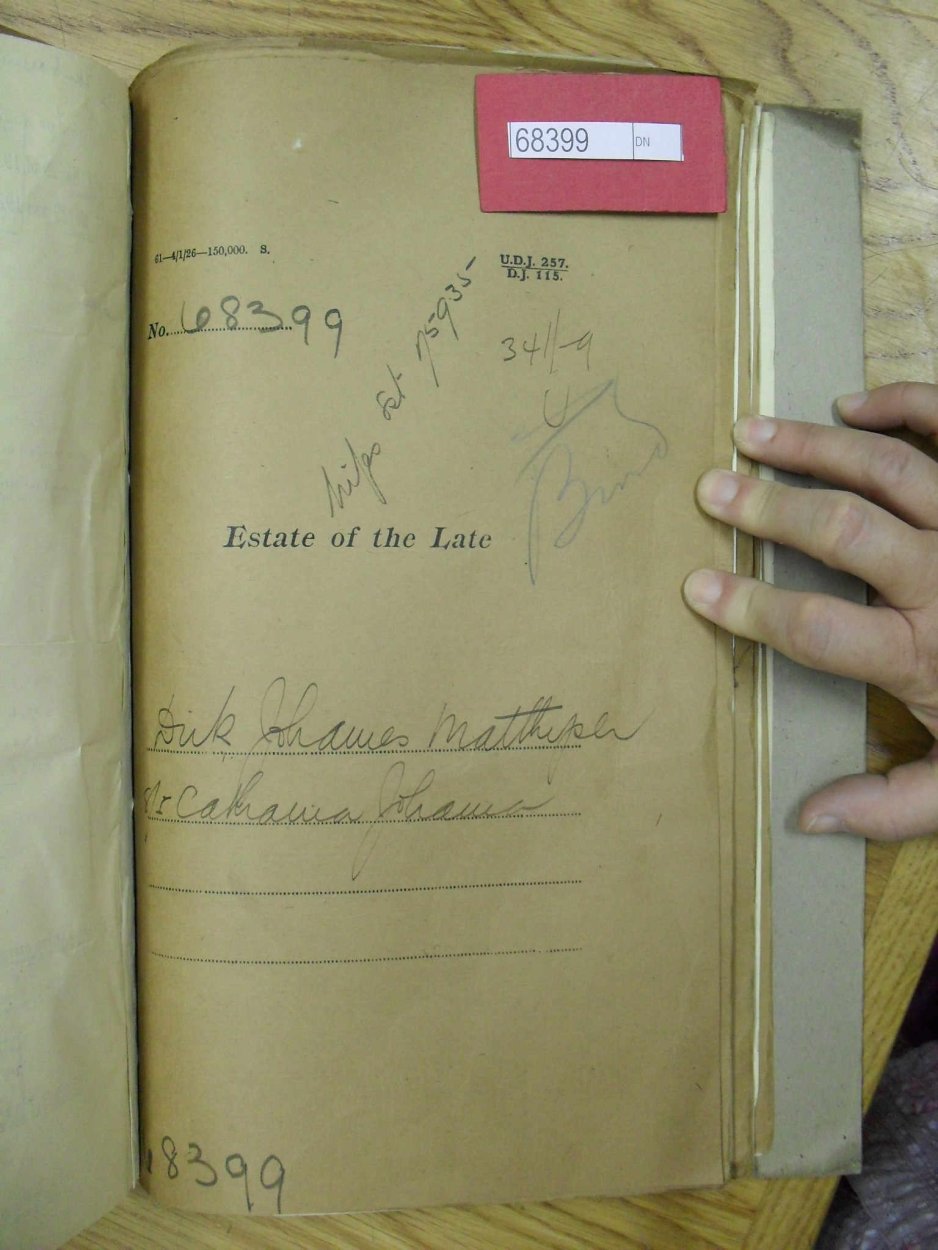 68399 DN
61—4/1/26—150,000. S.
U.D.J. 257.
D.J. 115.
No. 68399
est 75935
341/-9
Estate of the Late
Dirk Johannes Matthysen
Catharina Johanna
8399